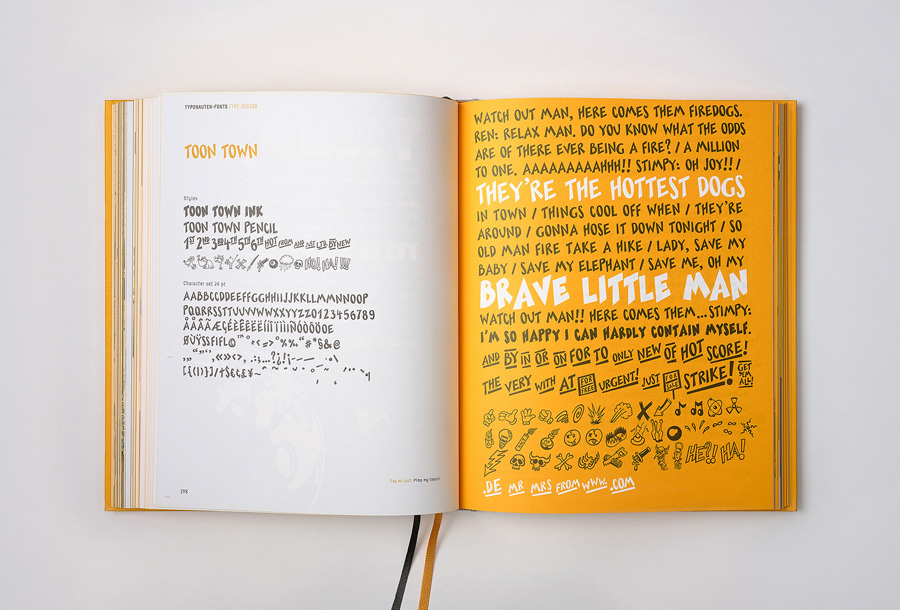 TYPONAUTEN-FONTS TYPE-DESIGN
TOON TOWN
Styles
TOON TOWN INK
TOON TOWN PENCIL
1ST 2ND 3RD 4TH 5TH 6TH HOT FROM AND BY NEW
HO! HA! !!!
Character set 24 pt
AABBCCDDEEFFGGHHIIJJKKLLMMNNOOP
PQQRRSSTTUUVVWWXXYYZZ0123456789
198
WATCH OUT MAN, HERE COMES THEM FIREDOGS.
REN: RELAX MAN. DO YOU KNOW WHAT THE ODDS
ARE OF THERE EVER BEING A FIRE? / A MILLION
TO ONE. AAAAAAAAAHHH!! STIMPY: OH JOY!! /
THEY'RE THE HOTTEST DOGS
IN TOWN / THINGS COOL OFF WHEN / THEY'RE
AROUND / GONNA HOSE IT DOWN TONIGHT / SO
OLD MAN FIRE TAKE A HIKE / LADY, SAVE MY
BABY / SAVE MY ELEPHANT / SAVE ME, OH MY
BRAVE LITTLE MAN
WATCH OUT MAN!! HERE COMES THEM...STIMPY:
I'M SO HAPPY I CAN HARDLY CONTAIN MYSELF.
AND BY IN OR ON FOR TO ONLY NEW OF HOT SCORE!
THE VERY WITH AT FOR FREE URGENT! JUST FOR SALE STRIKE! GET 'EM ALL!
HE?! HA!
.DE MR MRS FROM WWW. .COM